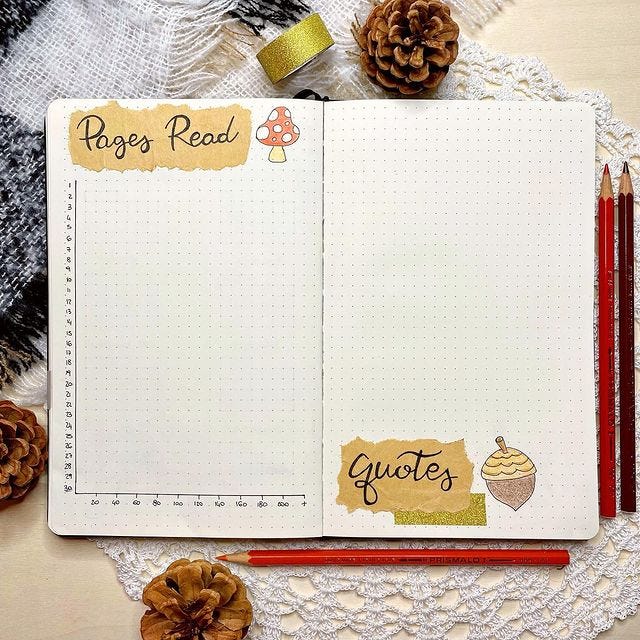 Pages Read
1
2
3
4
5
6
7
8
9
10
11
12
13
14
15
16
17
18
19
20
21
22
23
24
25
26
27
28
29
30
20 40 60 80 100 120 140 160 180 200 +
Quotes
PRISMALO